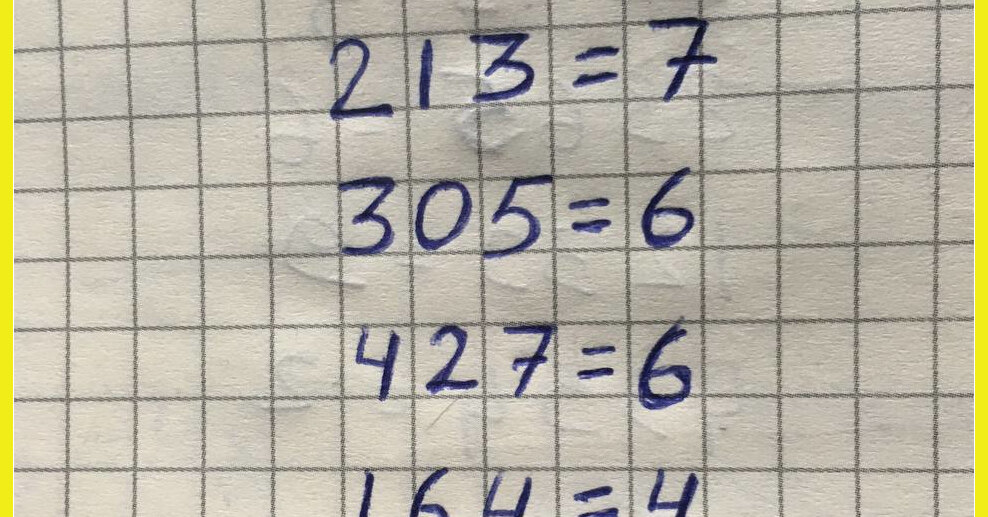 213=7
305=6
427=6
164=4